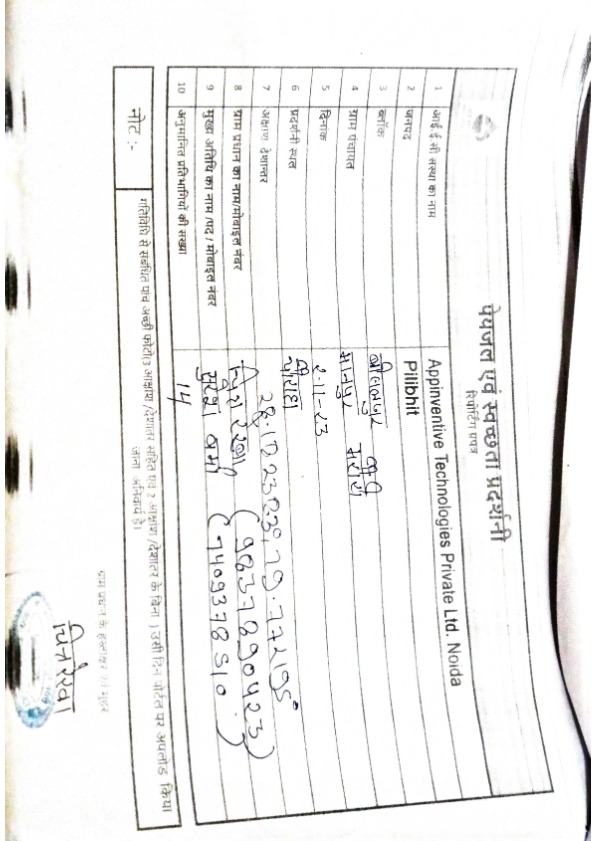 पेयजल एवं स्वच्छता प्रदर्शनी
रिपोर्टिंग प्रपत्र
1 आई ई सी संस्था का नाम Appinventive Technologies Private Ltd. Noida
2 जनपद Pilibhit
3 ब्लॉक बीसलपुर
4 ग्राम पंचायत भानपुर
5 दिनांक 2-11-23
6 प्रदर्शनी स्थल चौराहा
7 अक्षांश देशान्तर
8 ग्राम प्रधान का नाम/मोबाइल नंबर चित्र रेखा
9 मुख्य अतिथि का नाम /पद / मोबाइल नंबर सुरेश वर्मा (7409378510)
10 अनुमानित प्रतिभागियों की संख्या 14
नोट :- गतिविधि से संबंधित पांच अच्छी फोटो(3 अक्षांश /देशान्तर सहित एवं 2 अक्षांश /देशान्तर के बिना ) उसी दिन पोर्टल पर अपलोड किया
जाना अनिवार्य है।
ग्राम प्रधान के हस्ताक्षर एवं मुहर
चित्ररेखा